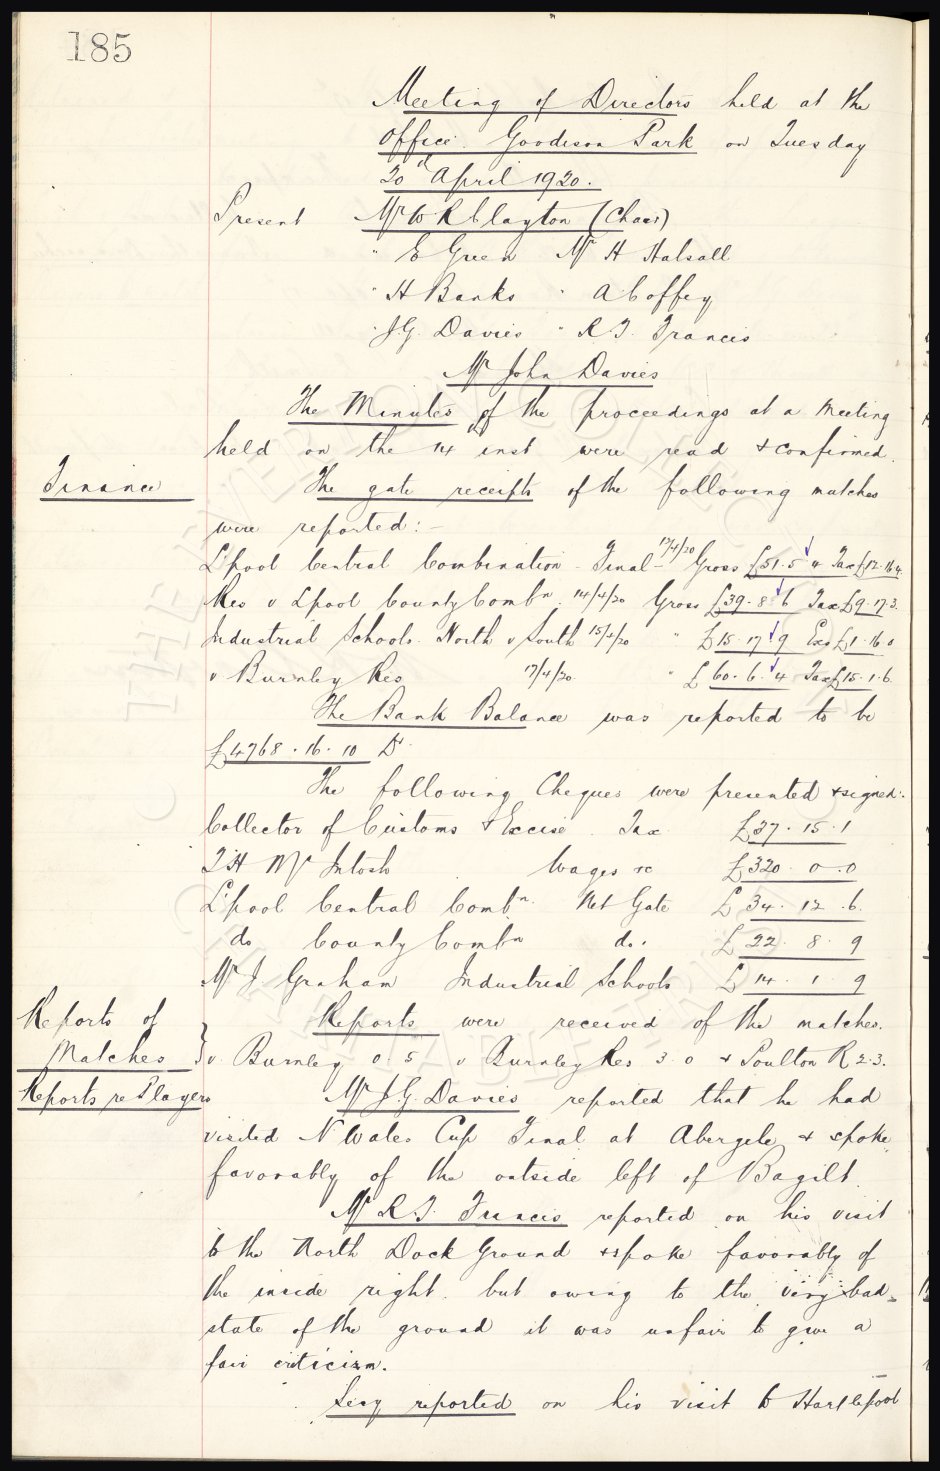 185
Meeting of Directors held at the
Office. Goodison Park on Tuesday
20th April 1920.
Present Mr W R Clayton (Chair)
" E Green Mr H Halsall
" H Banks " A Coffey
" J.G. Davies " R T. Francis
Mr John Davies
The Minutes of the proceedings at a Meeting
held on the 14th inst were read & confirmed.
Finance The gate receipts of the following matches
were reported:-
L'pool Central Combination - Final - 17/4/20 Gross £51.5.4 Tax £12.16.4.
Res v Lpool County Combn. 14/4/20 Gross £39.8.6 Tax £9.17.3.
Industrial Schools. North v South 15/4/20 " £15.17.9 Exs £1.16.0
v Burnley Res 17/4/20 " £60.6.4 Tax £15.1.6.
The Bank Balance was reported to be
£4768.16.10 Dr.
The following Cheques were presented & signed:-
Collector of Customs & Excise. Tax £37.15.1
T H McIntosh Wages &c £320.0.0
L'pool Central Combn. Net Gate £34.12.6.
do County Combn do. £22.8.9
Mr J Graham Industrial Schools £14.1.9
Reports of Matches } Reports were received of the matches.
v. Burnley 0.5 v Burnley Res 3.0 & Poulton R 2.3.
Reports re Players Mr J.G. Davies reported that he had
visited N Wales Cup Final at Abergele & spoke
favorably of the outside left of Bagilt.
Mr R.T. Francis reported on his visit
to the North Dock Ground & spoke favorably of
the inside right. but owing to the very bad
state of the ground it was unfair to give a
fair criticizm.
Secy reported on his visit to Hartlepool